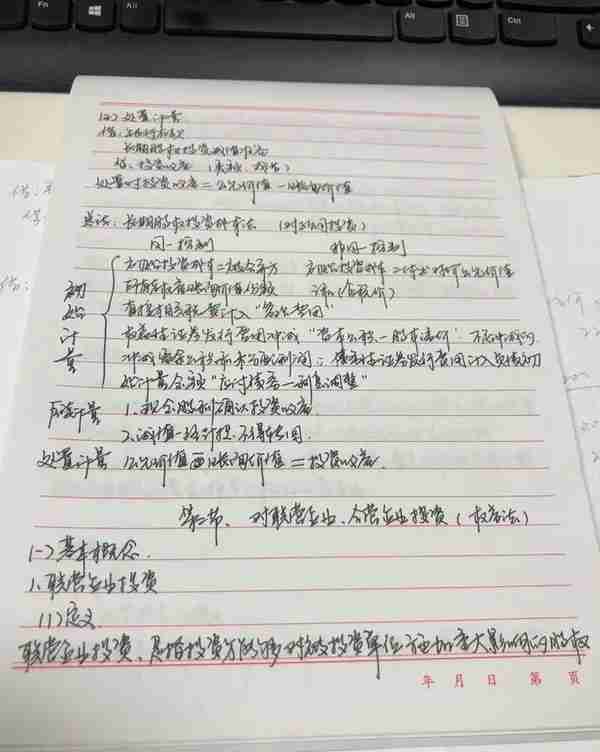 Fn
Alt
Ctrl
(四) 处置计量
借:银行存款
长期股权投资减值准备
贷:投资收益 (差额,损益)
处置时投资收益=公允价值-账面价值
总结:长期股权投资成本法 (对子公司投资)
同一控制 非同一控制
初始计量
长期股权投资成本=被合并方 长期股权投资成本=付出对价公允价值
所有者权益账面价值份额
直接相关税费计入“管理费用”
权益性证券发行费用冲减“资本公积—股本溢价”,不足冲减的
冲减盈余公积和未分配利润;债务性证券发行费用计入负债初
始计量金额“应付债券—利息调整”
后续计量 1.现金股利确认投资收益
2.减值一经计提不得转回.
处置计量 公允价值 账面价值=投资收益.
第二节、对联营企业、合营企业投资(权益法)
(一)基本概念.
1.联营企业投资
(1)定义
联营企业投资,是指投资方能够对被投资单位施加重大影响的股权
年 月 日 第 页